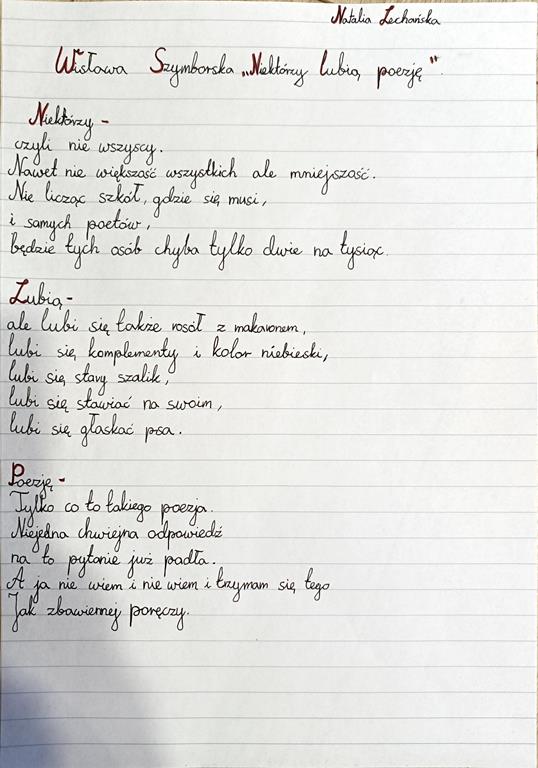 Natalia Lechańska
Wisława Szymborska „Niektórzy lubią poezję".
Niektórzy -
czyli nie wszyscy.
Nawet nie większość wszystkich ale mniejszość.
Nie licząc szkół, gdzie się musi,
i samych poetów,
będzie tych osób chyba tylko dwie na tysiąc.
Lubią -
ale lubi się także rosół z makaronem,
lubi się komplementy i kolor niebieski,
lubi się stary szalik,
lubi się stawiać na swoim,
lubi się głaskać psa.
Poezję -
Tylko co to takiego poezja.
Niejedna chwiejna odpowiedź
na to pytanie już padła.
A ja nie wiem i nie wiem i trzymam się tego
Jak zbawiennej poręczy.